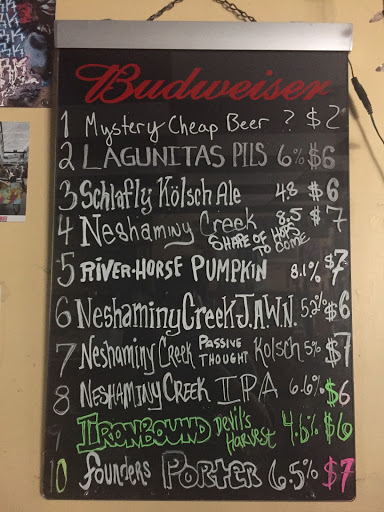 Budweiser
1 Mystery Cheap Beer ? $2
2 LAGUNITAS PILS 6% $6
3 Schlafly Kölsch Ale 4.8 $6
4 Neshaminy Creek SHAPE OF HOPS TO COME 8.5 $7
5 RIVER HORSE PUMPKIN 8.1% $7
6 Neshaminy Creek J.A.W.N. 5.2% $6
7 Neshaminy Creek PASSIVE THOUGHT Kolsch 5% $7
8 NESHAMINY CREEK IPA 6.6% $6
9 IRONBOUND Devil's HARVEST 4.6% $6
10 founders PORTER 6.5% $7